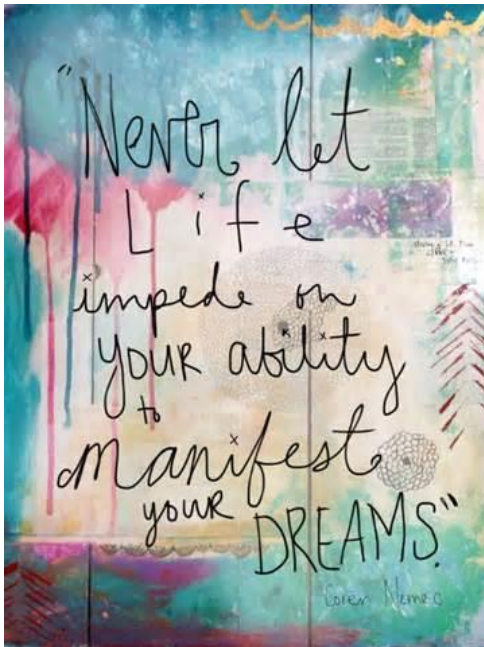 "Never let
Life
impede on
YOUR ability
to
manifest
your
DREAMS."
Coren Nemec